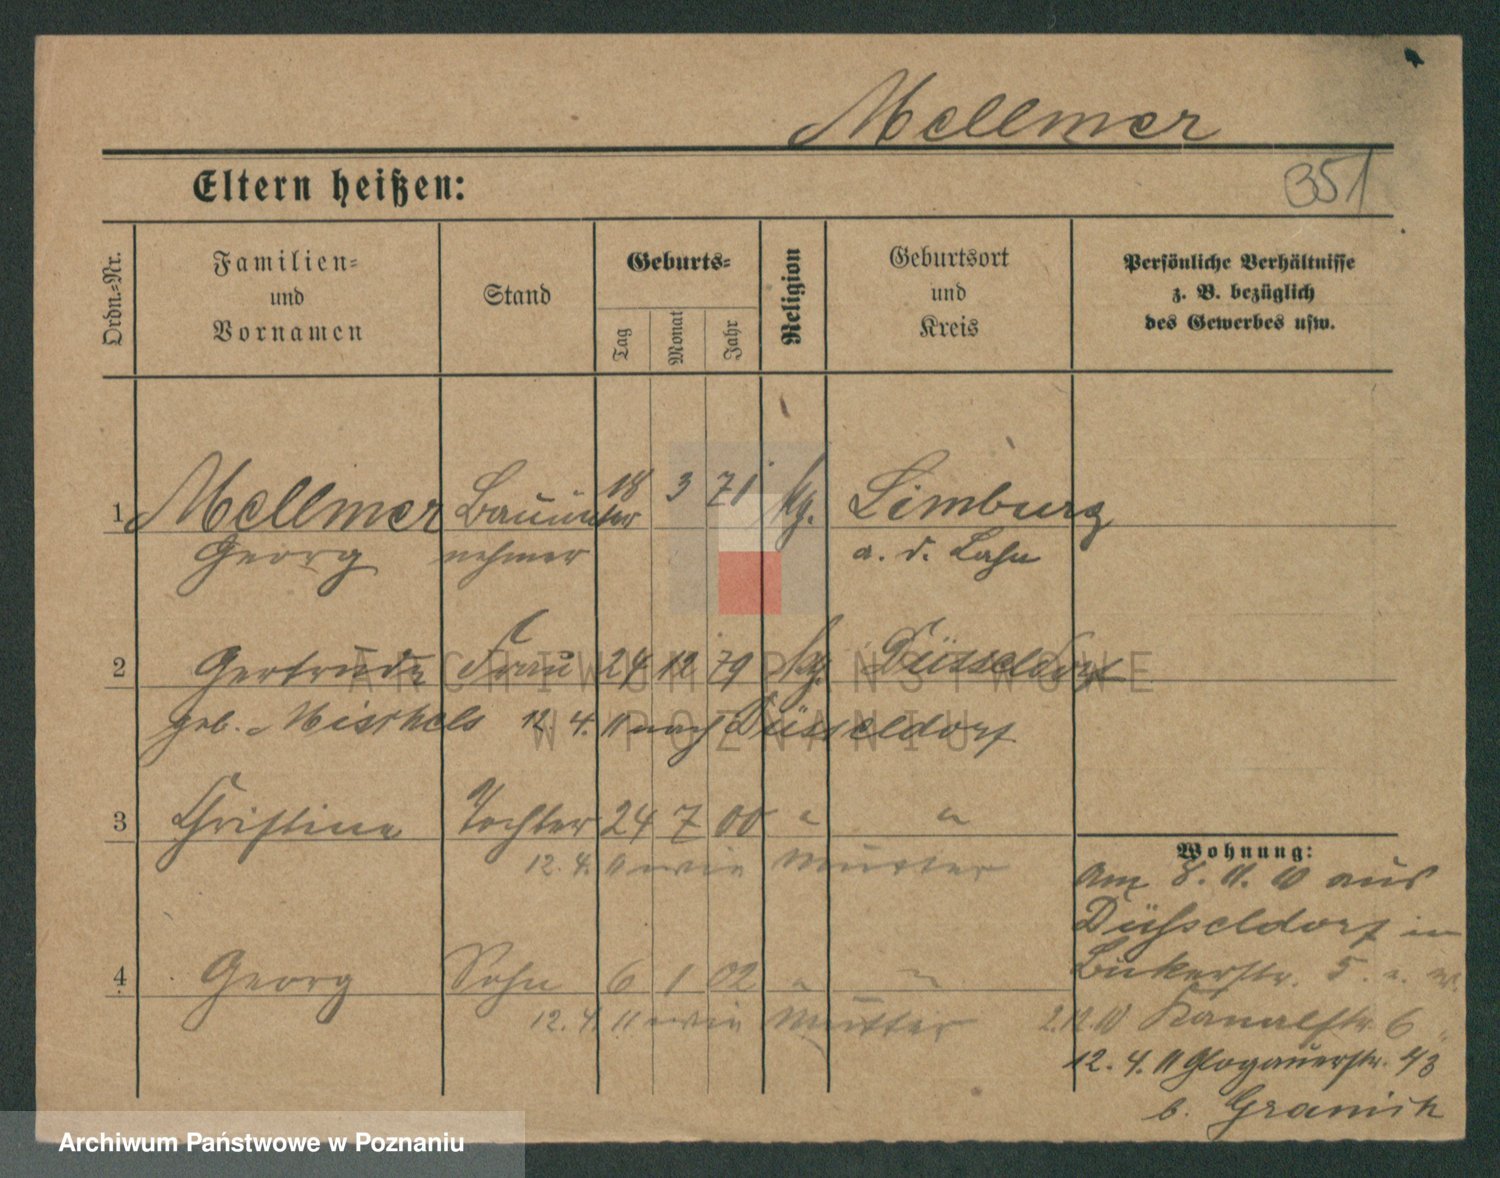 Mellmer
Eltern heißen:
351
Ordn.-Nr.
Familien-
und
Vornamen
Stand
Geburts-
Tag
Monat
Jahr
Religion
Geburtsort
und
Kreis
Persönliche Verhältnisse
z. B. bezüglich
des Gewerbes usw.
1 Mellmer Bauunter 18 3 71 kg. Limburg
Georg nehmer a. d. Lahn
2 Gertrude Frau 24 12 79 kg. Düsseldorf
geb. Mischels 12. 4. 11 nach Düsseldorf
3 Christine Tochter 24 7 00 " "
12. 4. 11 wie Mutter
4 Georg Sohn 6 1 02 " "
12. 4. 11 wie Mutter
Wohnung:
Am 8. 11. 10 aus
Düsseldorf in
Bukerstr. 5
2.12.10 Kanalstr. 6
12. 4. 11 Glogauerstr. 43
b. Gramsch
ARCHIWUM PAŃSTWOWE
W POZNANIU
Archiwum Państwowe w Poznaniu